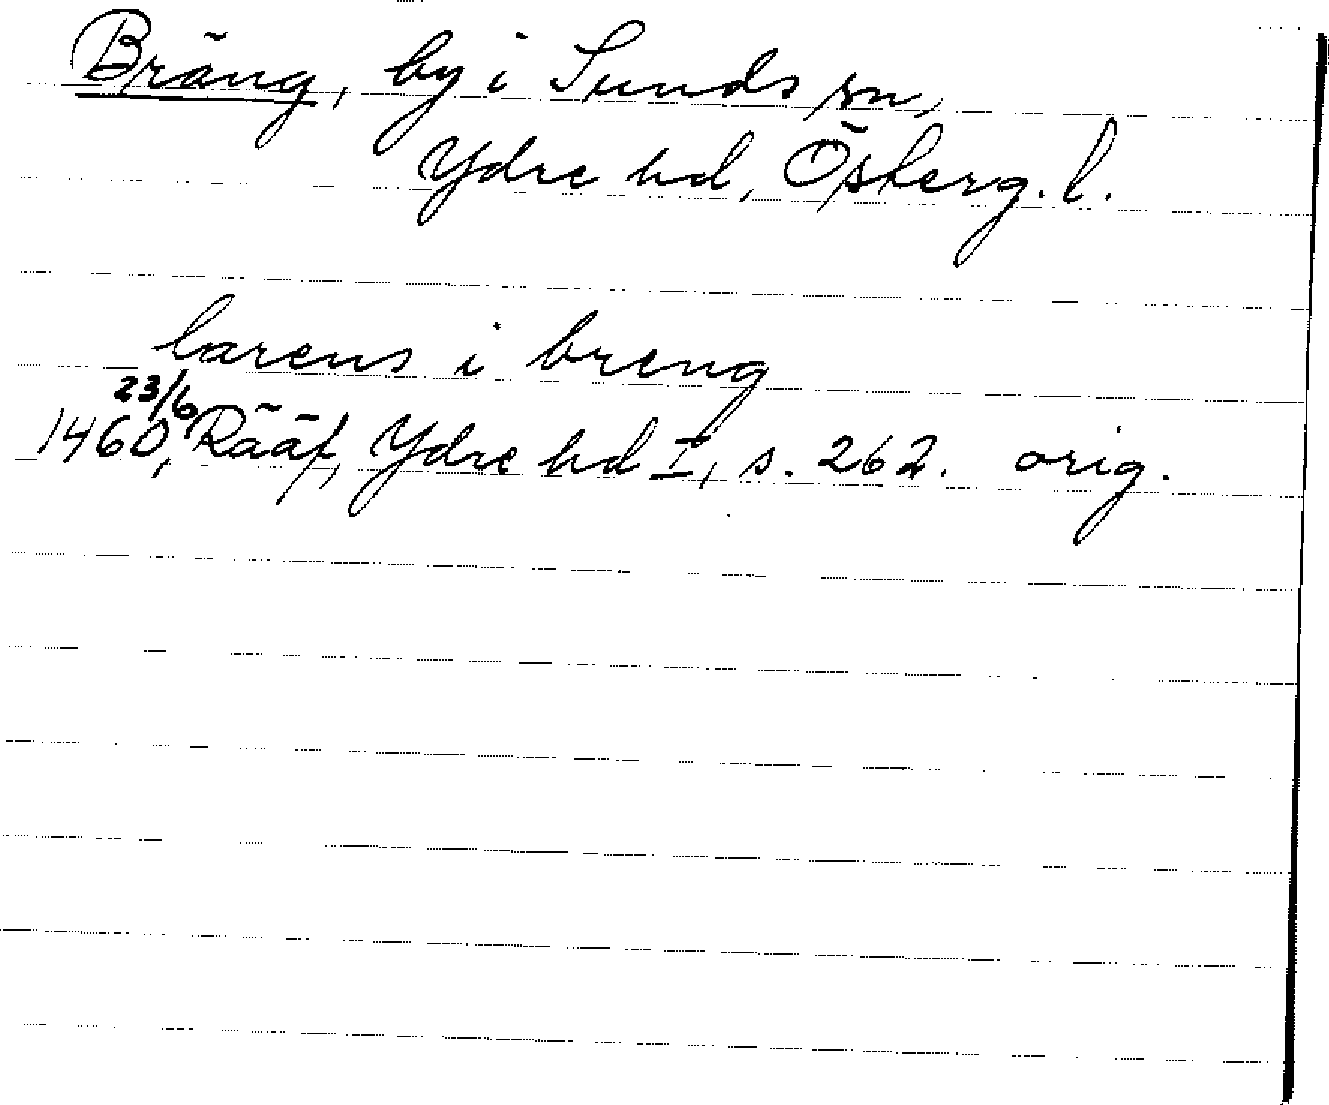 Bräng, by i Sunds sn,
Ydre hd, Österg. l.
larens i breng
23/6
1460, Rääf, Ydre hd I, s. 262. orig.